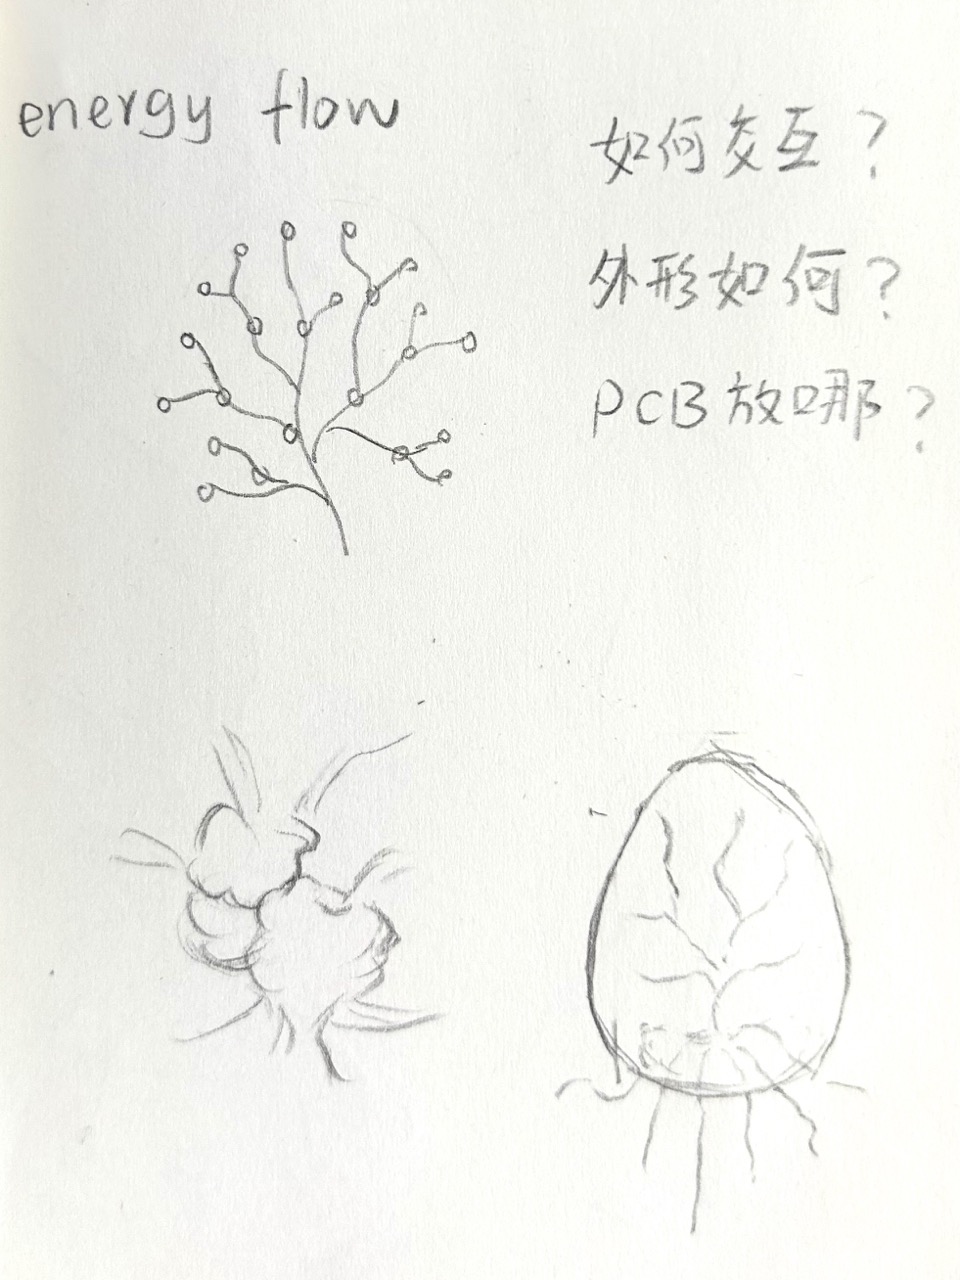 energy flow
如何交互？
外形如何？
PCB放哪？